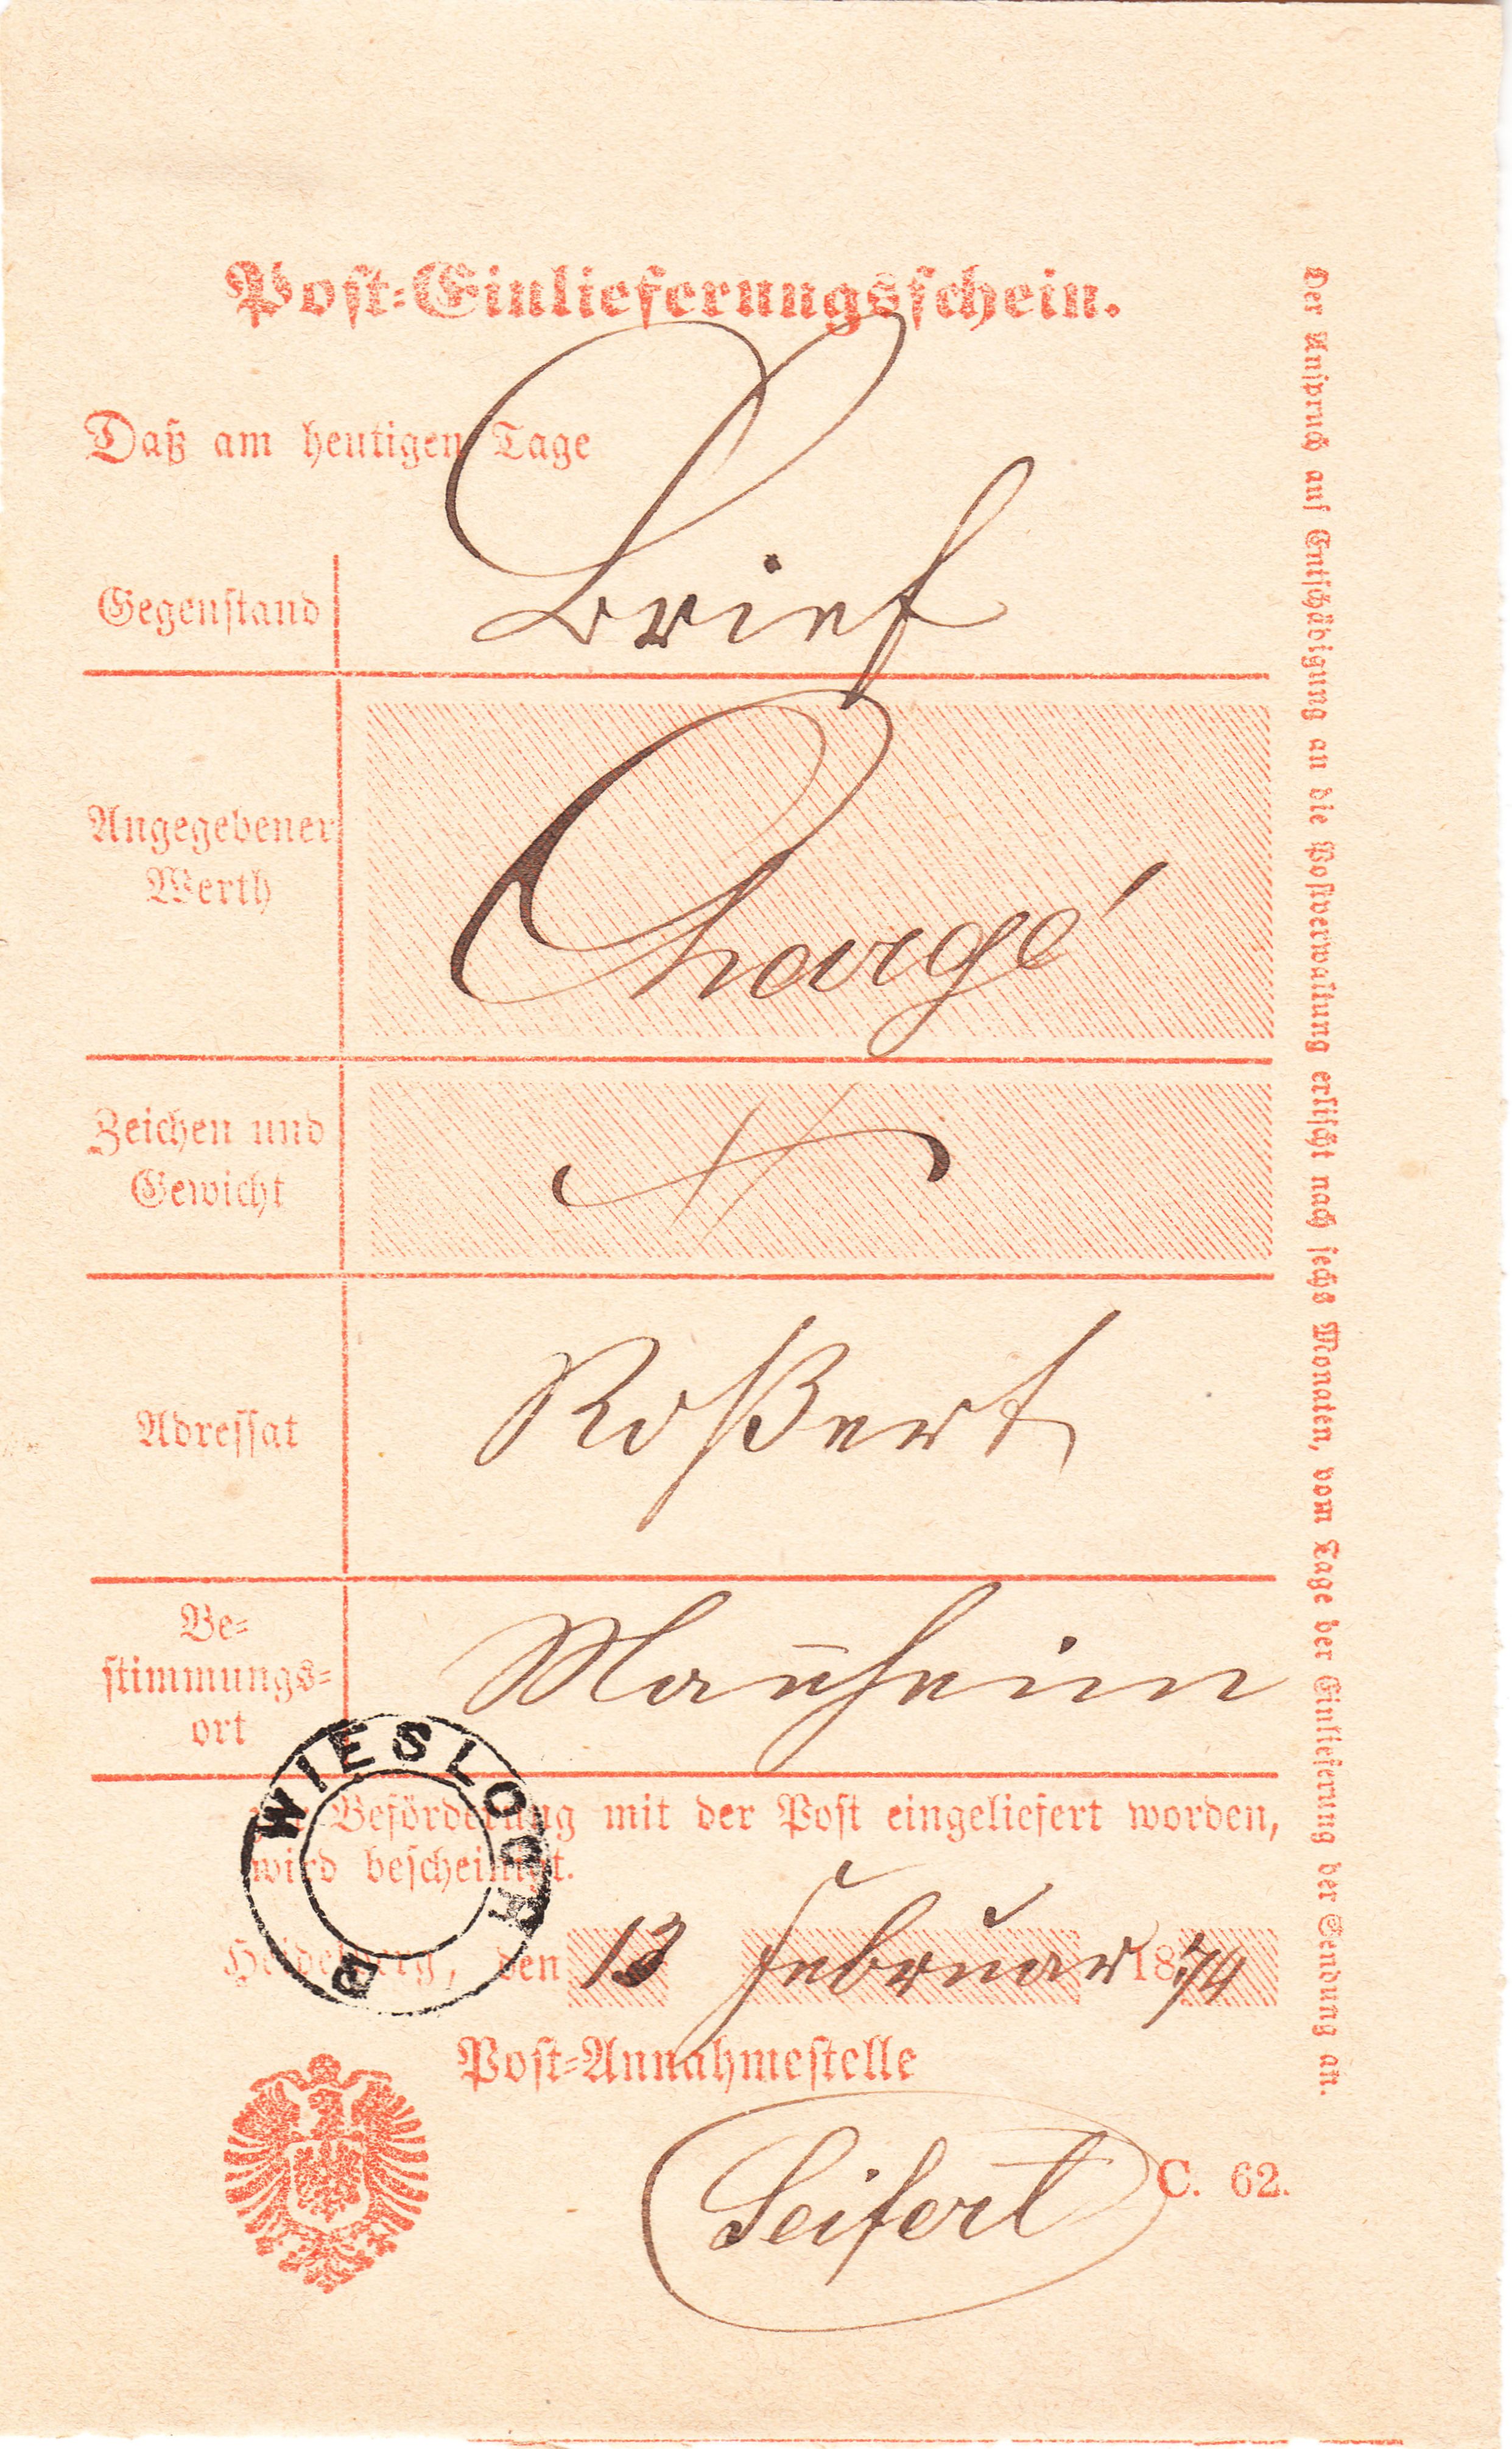 Post-Einlieferungsschein.
Daß am heutigen Tage
Gegenstand Brief
Angegebener
Werth Chargé
Zeichen und
Gewicht
Adressat Roßert
Be-
stimmungs-
ort Man̄heim
zur Beförderung mit der Post eingeliefert worden,
wird bescheinigt.
Heidelberg, den 13 Februar 1874
WIESLOCH
B
Post-Annahmestelle
Seifert
C. 62.
Der Anspruch auf Entschädigung an die Postverwaltung erlischt nach sechs Monaten, vom Tage der Einlieferung der Sendung an.